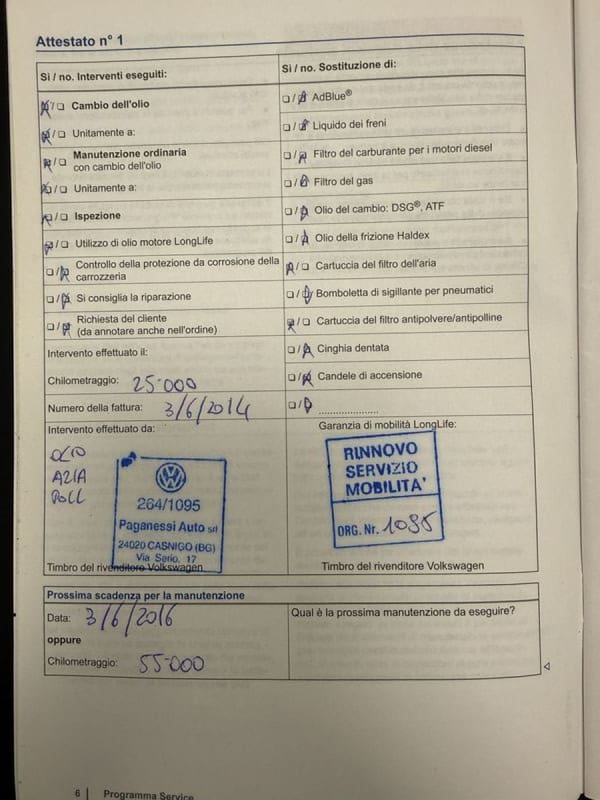 Attestato n° 1
Sì / no. Interventi eseguiti:
Cambio dell'olio
Unitamente a:
Manutenzione ordinaria
con cambio dell'olio
Unitamente a:
Ispezione
Utilizzo di olio motore LongLife
Controllo della protezione da corrosione della
carrozzeria
Si consiglia la riparazione
Richiesta del cliente
(da annotare anche nell'ordine)
Intervento effettuato il:
Chilometraggio: 25.000
Numero della fattura: 3/6/2014
Intervento effettuato da:
OLIO
ARIA
POLL
264/1095
Paganessi Auto srl
24020 CASNIGO (BG)
Via Serio, 17
Timbro del rivenditore Volkswagen
Sì / no. Sostituzione di:
AdBlue®
Liquido dei freni
Filtro del carburante per i motori diesel
Filtro del gas
Olio del cambio: DSG®, ATF
Olio della frizione Haldex
Cartuccia del filtro dell'aria
Bomboletta di sigillante per pneumatici
Cartuccia del filtro antipolvere/antipolline
Cinghia dentata
Candele di accensione
Garanzia di mobilità LongLife:
RINNOVO
SERVIZIO
MOBILITA'
ORG. Nr. 1095
Timbro del rivenditore Volkswagen
Prossima scadenza per la manutenzione
Data: 3/6/2016
oppure
Chilometraggio: 55.000
Qual è la prossima manutenzione da eseguire?
6 | Programma Service